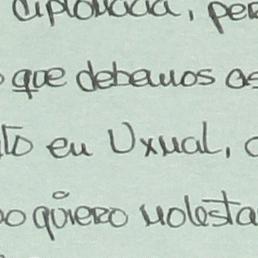 diplomacia, per
o que debemos as
to en Uxmal, c
o quiero molesta